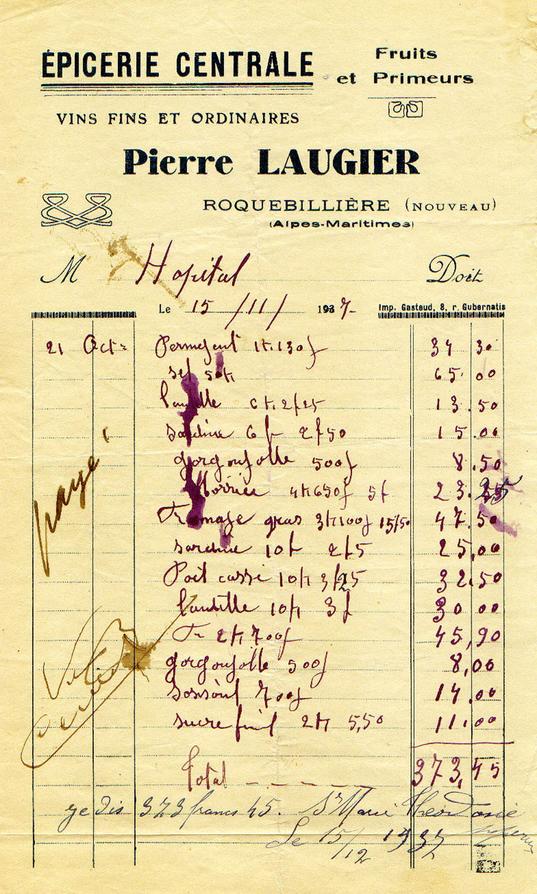 ÉPICERIE CENTRALE
Fruits
et Primeurs
VINS FINS ET ORDINAIRES
Pierre LAUGIER
ROQUEBILLIÈRE (NOUVEAU)
(Alpes-Maritimes)
M Hopital Doit
Le 15 /11/ 1937 Imp. Gastaud, 8, r. Gubernatis
21 Oct 1k130g 34 30
sel 50k 65.00
6k 2f25 13.50
sardine 6 2f50 15.00
gorgonjolle 500g 8.50
4k650g 5f 23.25
Fromage gras 3k100g 15/50 47.50
sardine 10 2f5 25,00
Poit casse 10k 3f25 32.50
lentille 10k 3f 30 00
Fr 2k700g 45,90
gorgonjolle 500g 8,00
700g 14.00
sucre 2k 5,50 11.00
payé
Total 373,45
je dis 373 francs 45. Sr Marie Théodosie
Le 15/12 1937